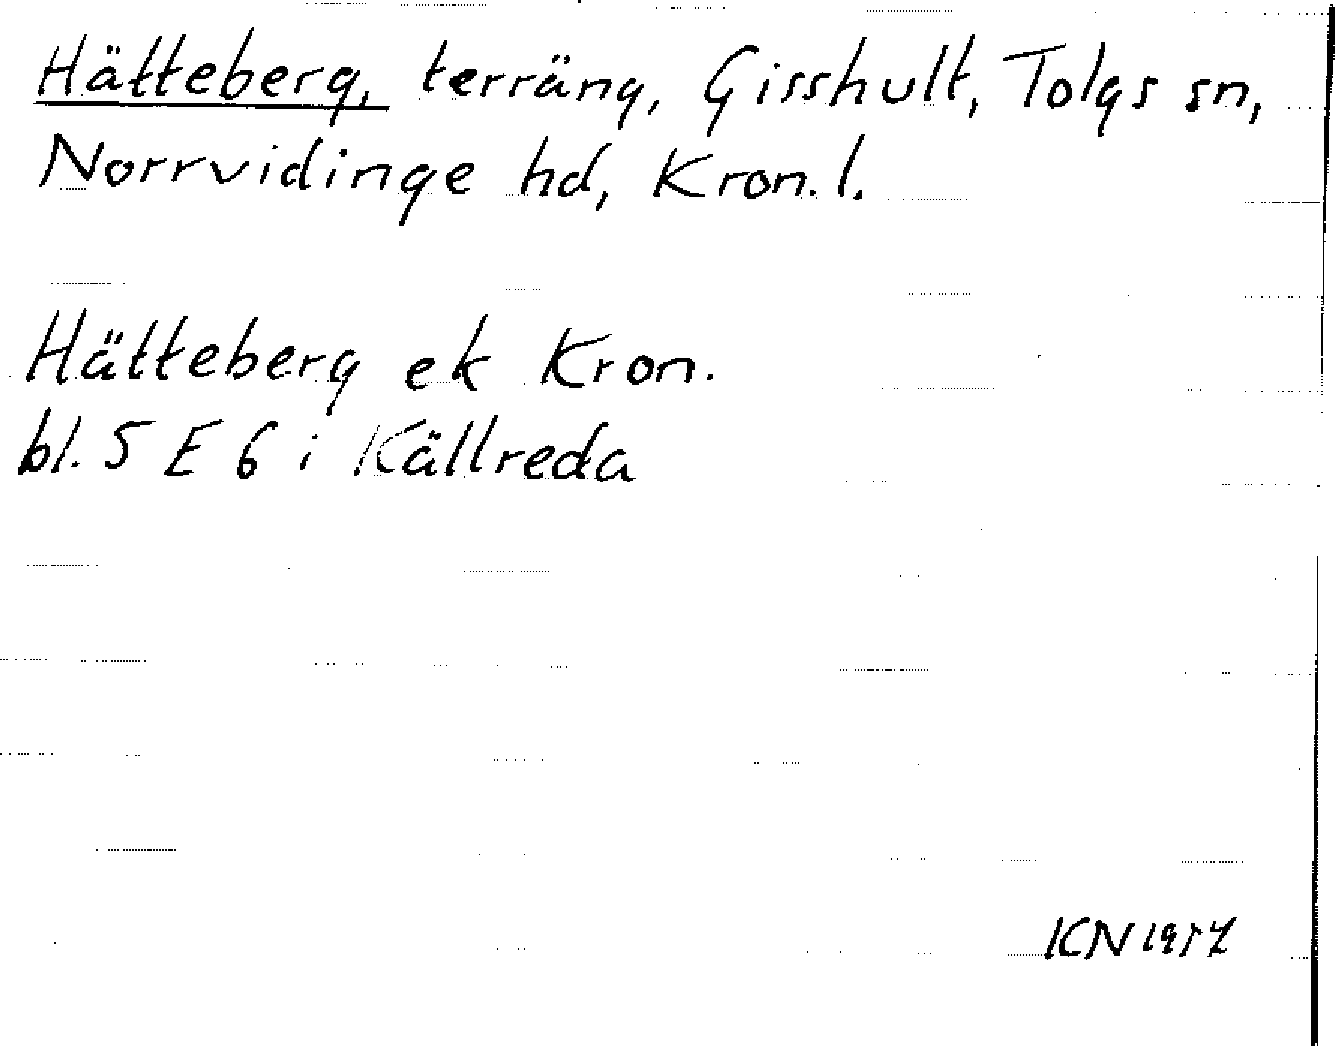 Hätteberg, terräng, Gisshult, Tolgs sn,
Norrvidinge hd, Kron. l.
Hätteberg ek Kron.
bl. 5 E 6 i Källreda
KN 1957